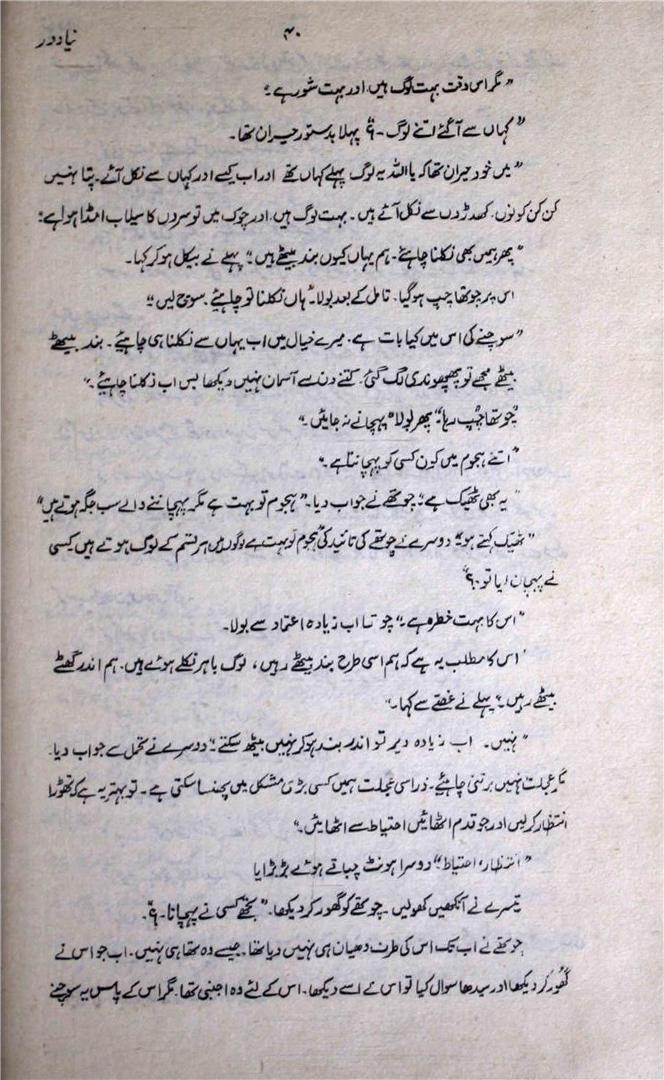 نیا دور
۴۰
"مگر اس وقت بہت لوگ ہیں، اور بہت شور ہے۔"
"کہاں سے آ گئے اتنے لوگ ۔؟" پہلا بدستور حیران تھا۔
"میں خود حیران تھا کہ یا اللہ یہ لوگ پہلے کہاں تھے اور اب کیسے اور کہاں سے نکل آئے۔ پتا نہیں
کن کن کونوں، کھدروں سے نکل آئے ہیں۔ بہت لوگ ہیں، اور چوک میں تو سروں کا سیلاب امڈا ہوا ہے۔"
"پھر ہمیں بھی نکلنا چاہئے۔ ہم یہاں کیوں بند بیٹھے ہیں۔" پہلے نے بیکل ہو کر کہا۔
اس پر چوتھا چپ ہو گیا۔ تامل کے بعد بولا۔ "ہاں نکلنا تو چاہئے۔ سوچ لیں۔"
"سوچنے کی اس میں کیا بات ہے، میرے خیال میں اب یہاں سے نکلنا ہی چاہئیے۔ بند بیٹھے
بیٹھے مجھے تو پھپھوندی لگ گئی۔ کتنے دن سے آسمان نہیں دیکھا بس اب نکلنا چاہئیے۔"
چوتھا چپ رہا۔ پھر بولا "پہچانے نہ جائیں۔"
"اتنے ہجوم میں کون کسی کو پہچانتا ہے۔"
"یہ بھی ٹھیک ہے۔" چوتھے نے جواب دیا۔ "ہجوم تو بہت ہے مگر پہچاننے والے سب جگہ ہوتے ہیں"
"ٹھیک کہتے ہو" دوسرے نے چوتھے کی تائید کی "ہجوم تو بہت ہے لوگوں میں ہر قسم کے لوگ ہوتے ہیں کسی
نے پہچان لیا تو۔؟"
"اس کا بہت خطرہ ہے۔" چوتھا اب زیادہ اعتماد سے بولا۔
"اس کا مطلب یہ ہے کہ ہم اسی طرح بند بیٹھے رہیں، لوگ باہر نکلے ہوئے ہیں۔ ہم اندر گھٹے
بیٹھے رہیں۔" پہلے نے غصے سے کہا۔
"نہیں۔ اب زیادہ دیر تو اندر بند ہو کر نہیں بیٹھ سکتے۔" دوسرے نے تحمل سے جواب دیا۔
مگر عجلت نہیں برتنی چاہئیے۔ ذرا سی عجلت ہمیں کسی بڑی مشکل میں پھنسا سکتی ہے۔ تو بہتر یہ ہے کہ تھوڑا
انتظار کر لیں اور جو قدم اٹھائیں احتیاط سے اٹھائیں۔"
"انتظار، احتیاط" دوسرا ہونٹ چباتے ہوئے بڑبڑایا
تیسرے نے آنکھیں کھولیں۔ چوتھے کو گھور کر دیکھا۔ "تجھے کسی نے پہچانا۔؟"۔
چوتھے نے اب تک اس کی طرف دھیان ہی نہیں دیا تھا۔ جیسے وہ تھا ہی نہیں۔ اب جو اس نے
گھور کر دیکھا اور سیدھا سوال کیا تو اس نے اسے دیکھا۔ اس کے لئے وہ اجنبی تھا۔ مگر اس کے پاس یہ سوچنے